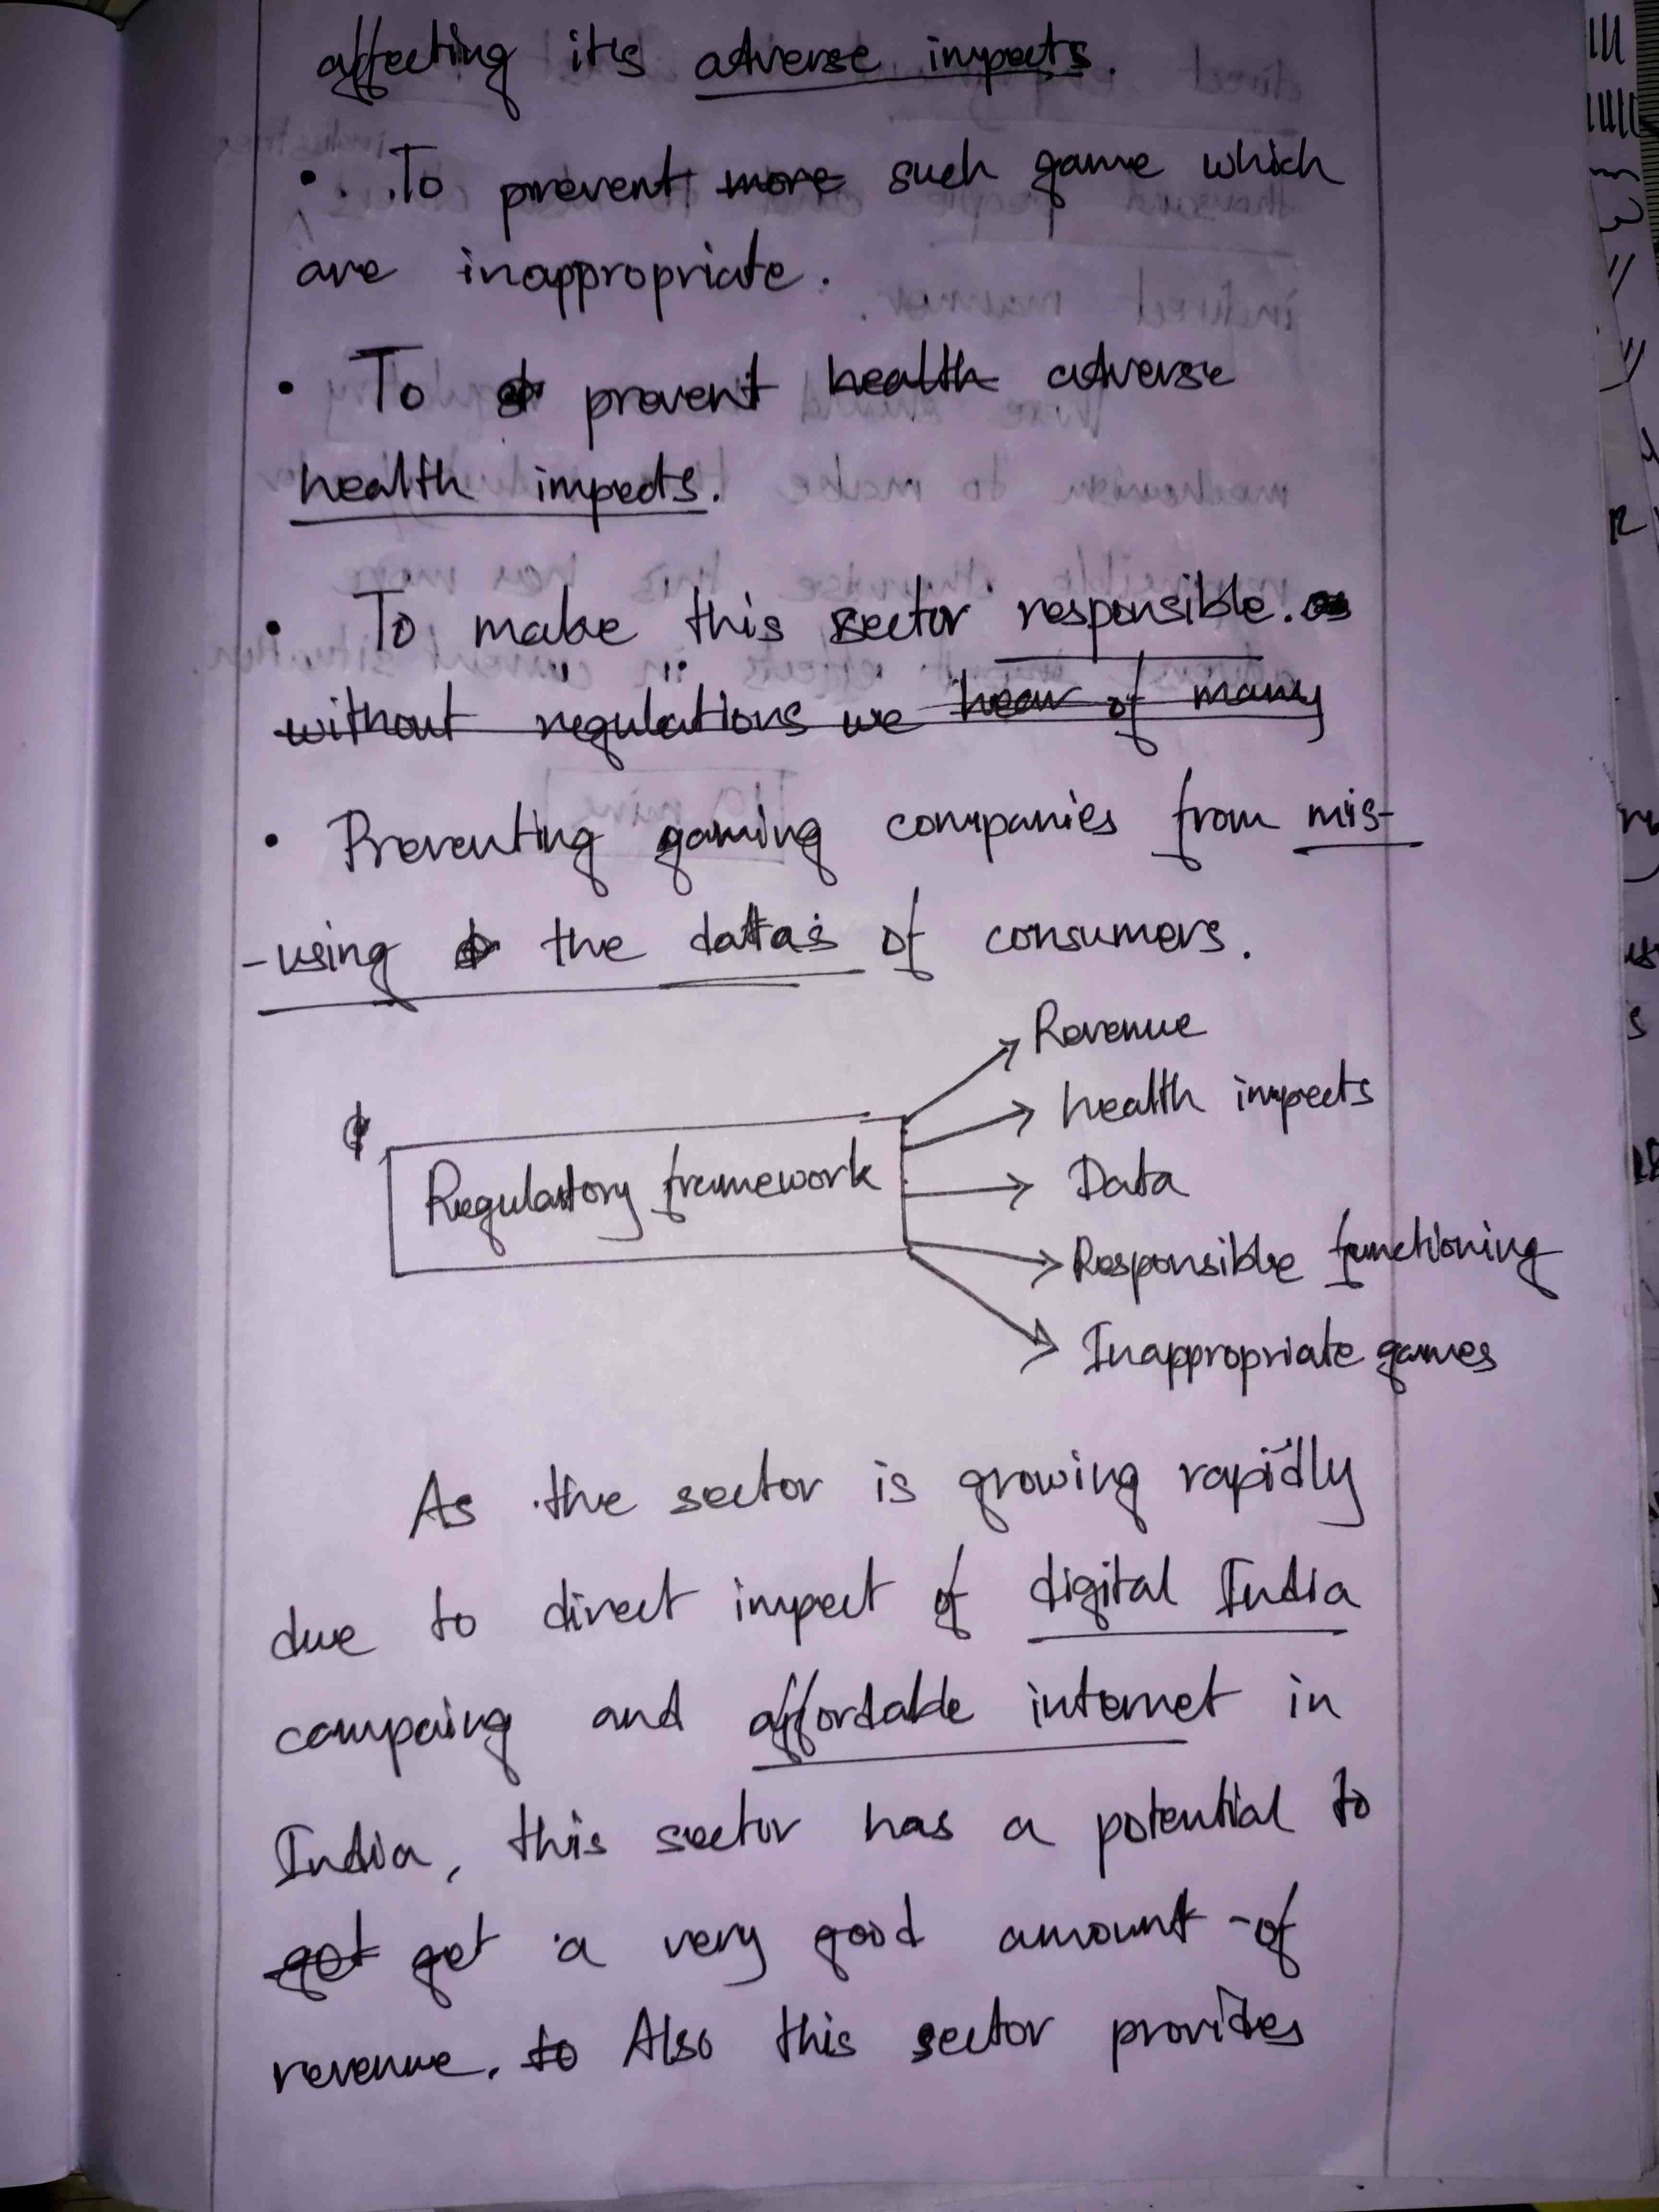 affecting it's adverse impacts.
• To prevent more such game which
are inappropriate.
• To prevent health adverse
health impects.
• To make this sector responsible.
without regulations we hear of many
• Preventing gaming companies from mis-
-using the datas of consumers.
Revenue
health impects
Regulatory framework
Data
Responsible functioning
Inappropriate games
As the sector is growing rapidly
due to direct impect of digital India
compaing and affordable internet in
India, this sector has a potential to
get get a very good amount of
revenue. to Also this sector provides